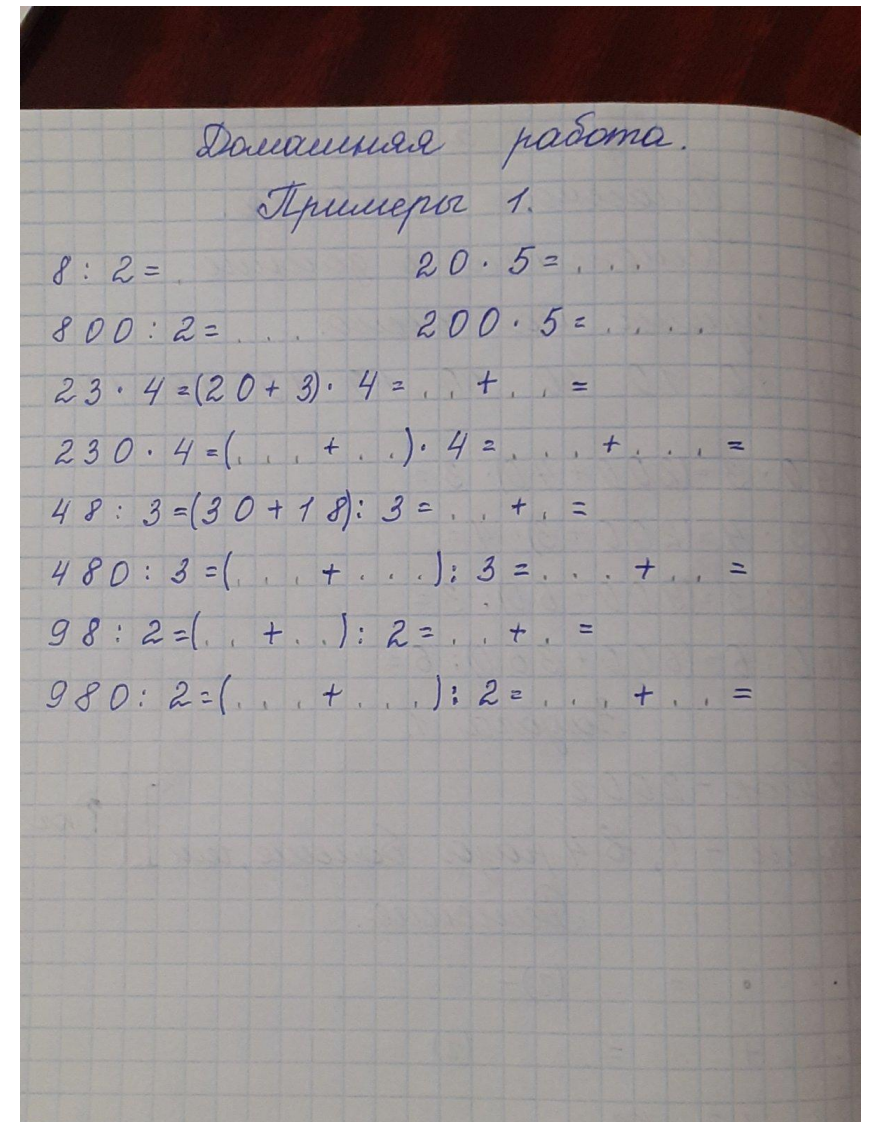 Домашняя работа.
Примеры 1.
8 : 2 = . 20 · 5 = . . .
800 : 2 = . . . 200 · 5 = . . . .
23 · 4 = (20 + 3) · 4 = . . + . . =
230 · 4 = (. . . + . .) · 4 = . . . + . . . =
48 : 3 = (30 + 18) : 3 = . . + . =
480 : 3 = (. . . + . . .) : 3 = . . . + . . =
98 : 2 = (. . + . .) : 2 = . . + . =
980 : 2 = (. . . + . . .) : 2 = . . . + . . =